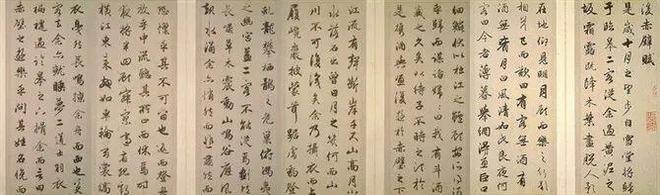 後赤壁賦
是歲十月之望步自雪堂將歸
于臨皋二客從余過黃泥之
坂霜露既降木葉盡脫人影
在地仰見明月顧而樂之行歌
相答已而歎曰有客無酒有
酒無肴月白風清如此良夜何
客曰今者薄暮舉網得魚巨口
細鱗狀似松江之鱸顧安所得酒
乎歸而謀諸婦婦曰我有斗酒
藏之久矣以待子不時之需於
是攜酒與魚復遊於赤壁之下
江流有聲斷岸千尺山高月小
水落石出曾日月之幾何而山
川不可復識矣余乃攝衣而上
履巉巖披蒙茸踞虎豹登
虬龍攀棲鶻之危巢俯馮夷
之幽宮蓋二客不能從焉劃然長
嘯草木震動山鳴谷應風
起水湧余亦悄然而悲肅然而
恐凜乎其不可留也返而登舟
放乎中流聽其所止而休焉時
夜將半四顧寂寥適有孤鶴
橫江東來翅如車輪玄裳縞
衣戛然長鳴掠余舟而西也須
臾客去余亦就睡夢二道士羽衣
翩躚過臨皋之下揖余而言曰
赤壁之遊樂乎問其姓名俛而